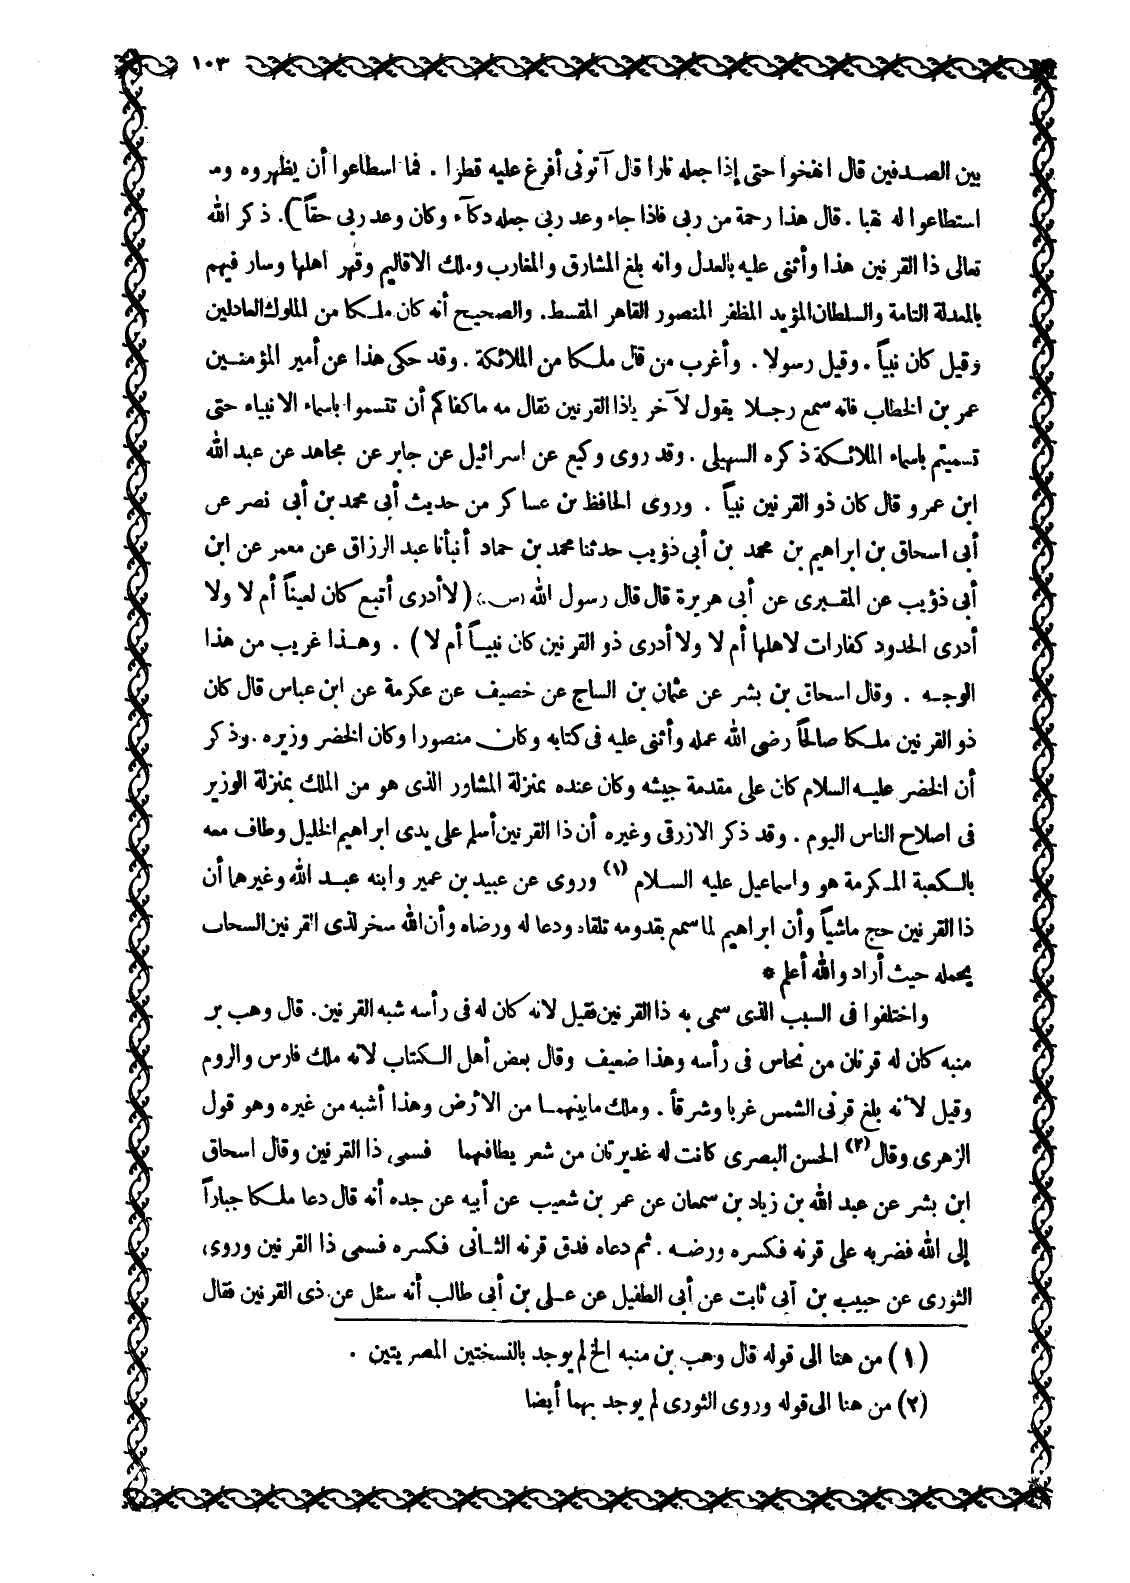 ١٠٣
بين الصدفين قال انفخوا حتى إذا جعله نارا قال آتونى أفرغ عليه قطرا . فما اسطاعوا أن يظهروه وما
استطاعوا له نقبا . قال هذا رحمة من ربى فاذا جاء وعد ربى جعله دكآء وكان وعد ربى حقاً ) . ذكر الله
تعالى ذا القرنين هذا وأثنى عليه بالعدل وانه بلغ المشارق والمغارب وملك الاقاليم وقهر اهلها وسار فيهم
بالمعدلة التامة والسلطان المؤيد المظفر المنصور القاهر المقسط . والصحيح أنه كان ملكا من الملوك العادلين
وقيل كان نبياً . وقيل رسولا . وأغرب من قال ملكا من الملائكة . وقد حكى هذا عن أمير المؤمنين
عمر بن الخطاب فانه سمع رجلا يقول لآخر ياذا القرنين فقال مه ماكفاكم أن تتسموا باسماء الانبياء حتى
تسميتم باسماء الملائكة ذكره السهيلى . وقد روى وكيع عن اسرائيل عن جابر عن مجاهد عن عبد الله
ابن عمرو قال كان ذو القرنين نبياً . وروى الحافظ بن عساكر من حديث أبى محمد بن أبى نصر عن
أبى اسحاق بن ابراهيم بن محمد بن أبى ذؤيب حدثنا محمد بن حماد أنبأنا عبد الرزاق عن معمر عن ابن
أبى ذؤيب عن المقبرى عن أبى هريرة قال قال رسول الله (ص.) ( لا أدرى أتبع كان لعيناً أم لا ولا
أدرى الحدود كفارات لاهلها أم لا ولا أدرى ذو القرنين كان نبياً أم لا ) . وهذا غريب من هذا
الوجه . وقال اسحاق بن بشر عن عثمان بن الساج عن خصيف عن عكرمة عن ابن عباس قال كان
ذو القرنين ملكا صالحاً رضى الله عمله وأثنى عليه فى كتابه وكان منصورا وكان الخضر وزيره . وذكر
أن الخضر عليه السلام كان على مقدمة جيشه وكان عنده بمنزلة المشاور الذى هو من الملك بمنزلة الوزير
فى اصلاح الناس اليوم . وقد ذكر الازرقى وغيره أن ذا القرنين أسلم على يدى ابراهيم الخليل وطاف معه
بالكعبة المكرمة هو واسماعيل عليه السلام (١) وروى عن عبيد بن عمير وابنه عبد الله وغيرهما أن
ذا القرنين حج ماشياً وأن ابراهيم لما سمع بقدومه تلقاه ودعا له ورضاه وأن الله سخر لذى القرنين السحاب
يحمله حيث أراد والله أعلم *
واختلفوا فى السبب الذى سمى به ذا القرنين فقيل لانه كان له فى رأسه شبه القرنين . قال وهب بن
منبه كان له قرنان من نحاس فى رأسه وهذا ضعيف وقال بعض أهل الكتاب لانه ملك فارس والروم
وقيل لأنه بلغ قرنى الشمس غربا وشرقاً . وملك مابينهما من الأرض وهذا أشبه من غيره وهو قول
الزهرى وقال (٢) الحسن البصرى كانت له غديرتان من شعر يطافيهما فسمى ذا القرنين وقال اسحاق
ابن بشر عن عبد الله بن زياد بن سمعان عن عمر بن شعيب عن أبيه عن جده أنه قال دعا ملكا جباراً
إلى الله فضربه على قرنه فكسره ورضه . ثم دعاه فدق قرنه الثانى فكسره فسمى ذا القرنين وروى
الثورى عن حبيب بن أبى ثابت عن أبى الطفيل عن على بن أبى طالب أنه سئل عن ذى القرنين فقال
(١) من هنا الى قوله قال وهب بن منبه الخ لم يوجد بالنسختين المصريتين .
(٢) من هنا الى قوله وروى الثورى لم يوجد بهما أيضا